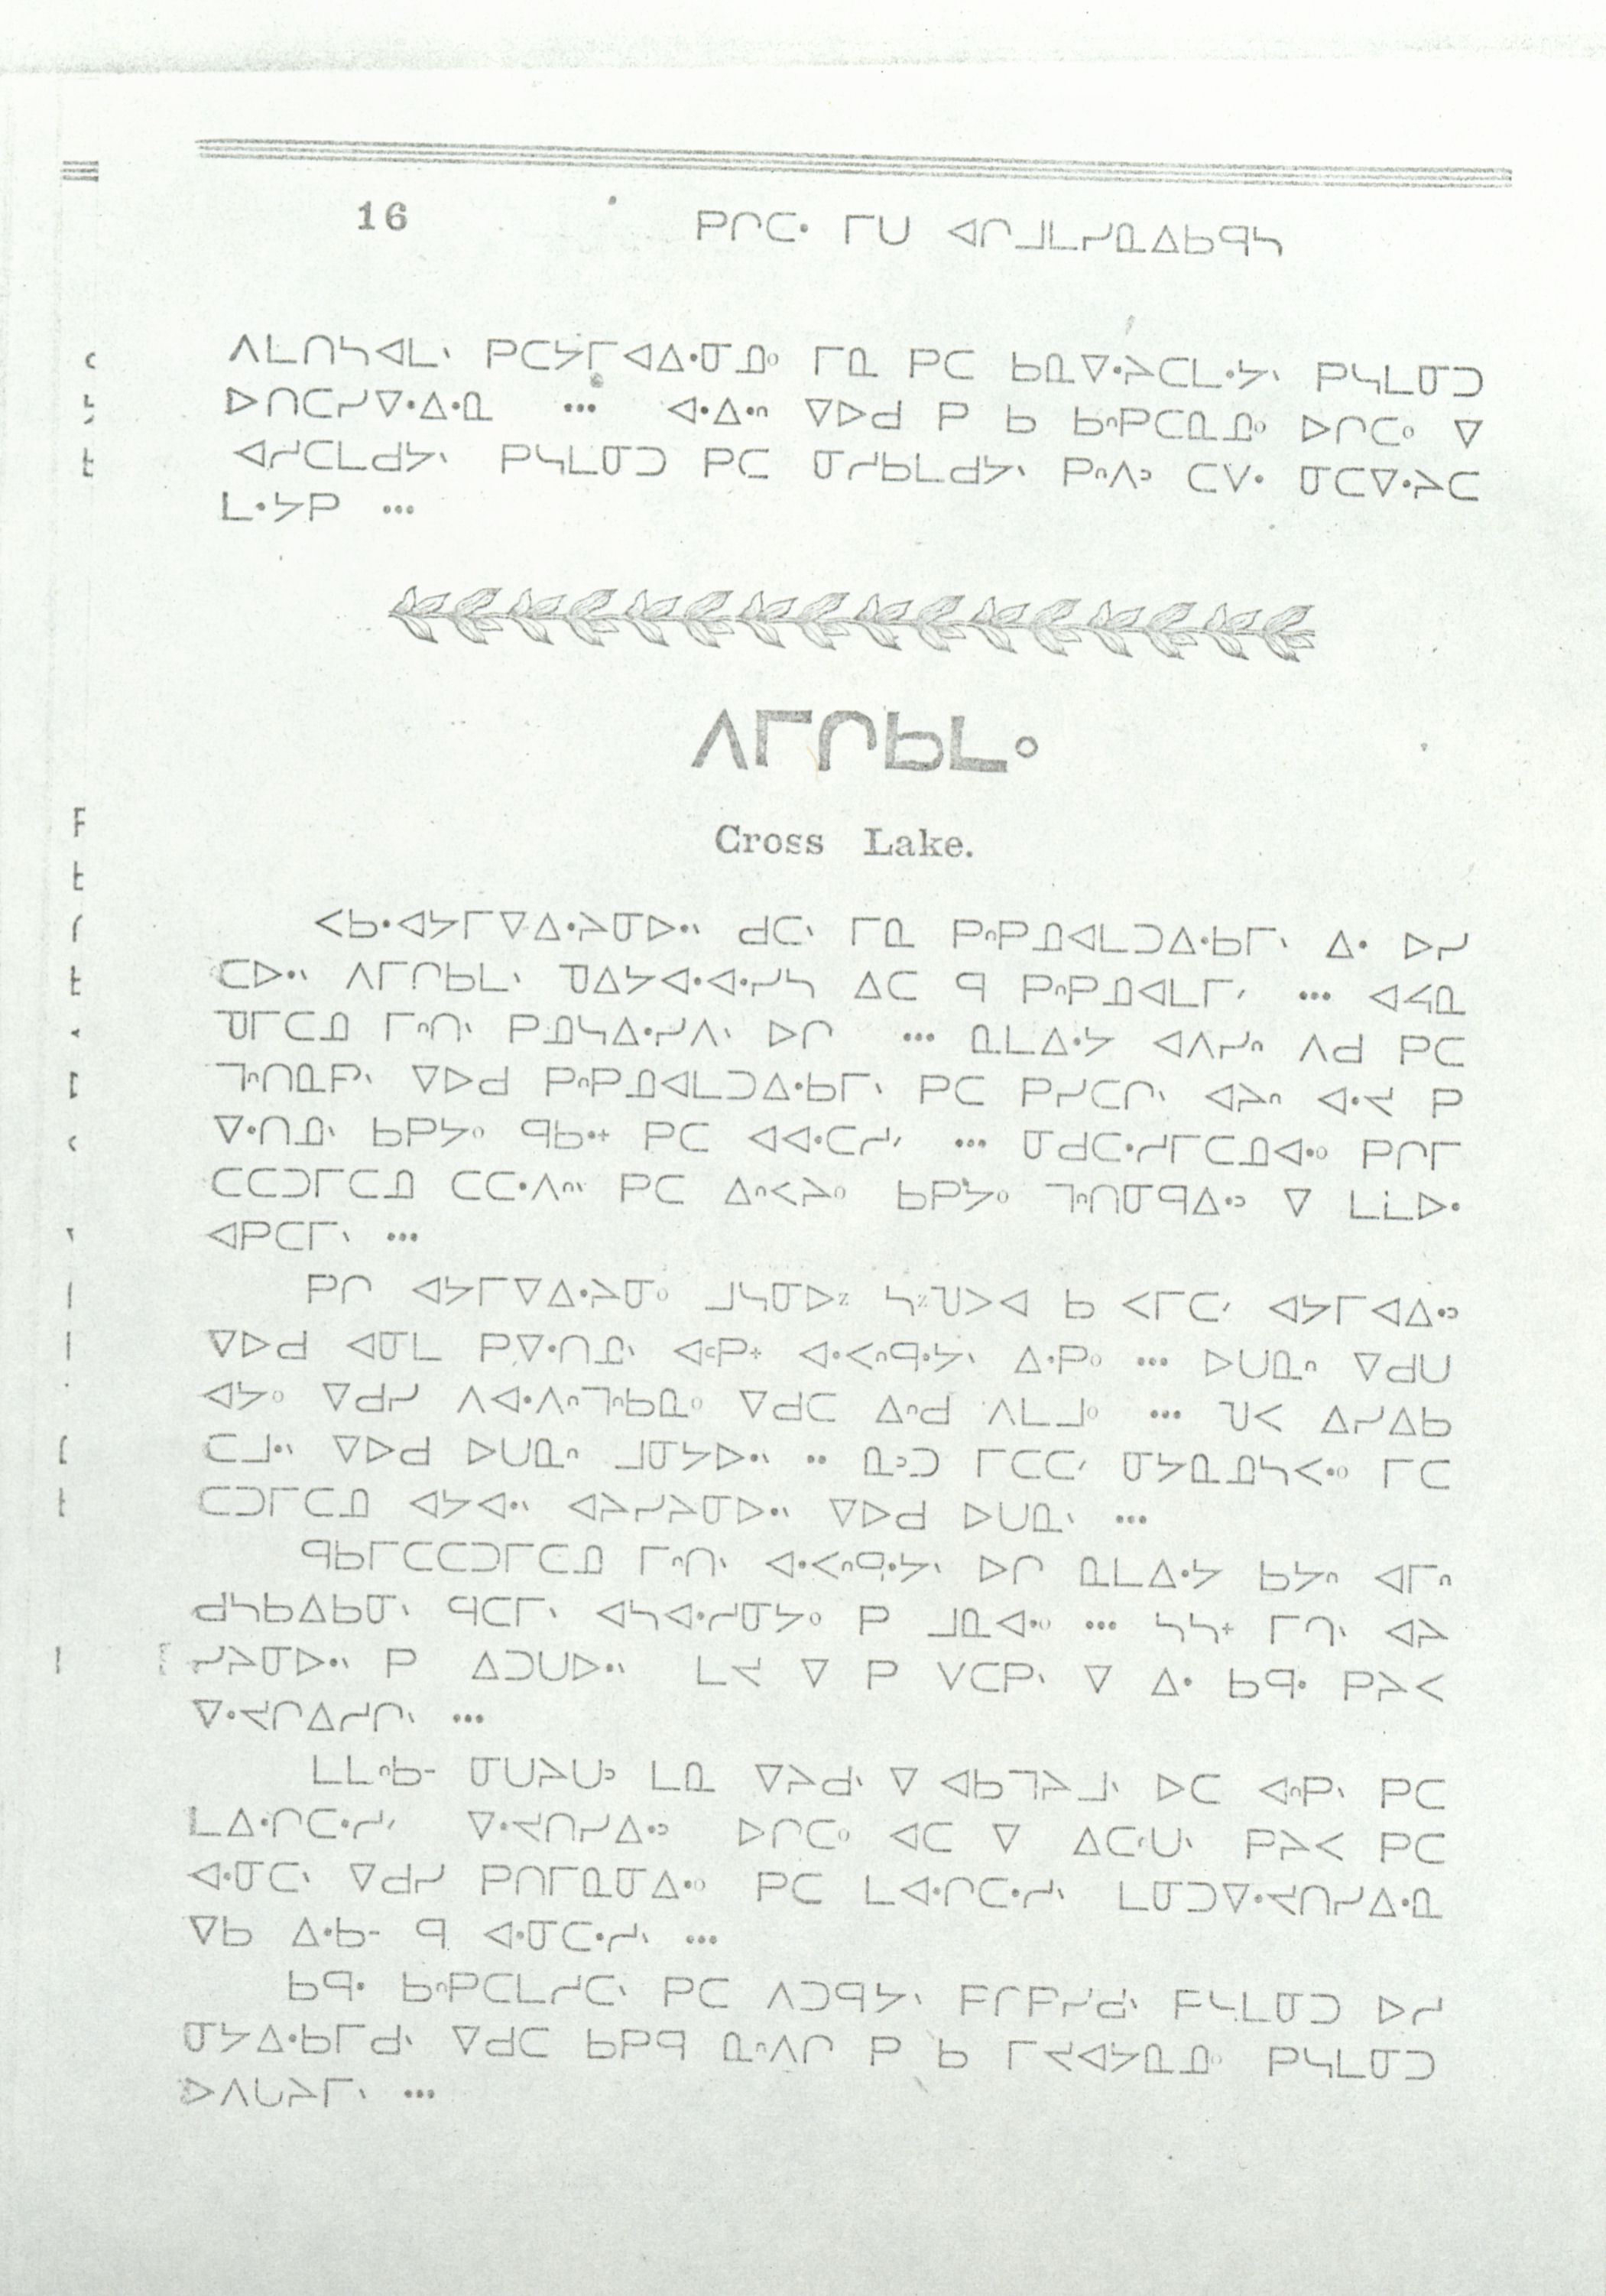 16 ᑭᒋᑕᐧ ᒥᑌ ᐊᒋᒧᒪᓯᓇᐃᑲᑫᓴ
ᐱᒪᑎᓴᐊᒪᐠ ᑭᑕᔭᒥᐊᐃᐧᓂᓄᐤ ᒥᓇ ᑭᑕ ᑲᓇᐁᐧᔨᑕᒪᐧᔭᐠ ᑭᓴᒪᓂᑐ
ᐅᑎᑕᓯᐁᐧᐃᐧᓇ ... ᐊᐧᐃᐧᐢ ᐁᐅᑯ ᑭ ᑲ ᑲᐢᑭᑕᓇᓄᐤ ᐅᒋᑕᐤ ᐁ
ᐊᓯᑕᒪᑯᔭᐠ ᑭᓴᒪᓂᑐ ᑭᑕ ᓂᓯᑲᒪᑯᔭᐠ ᑭᐢᐱᐣ ᑕᐯᐧ ᓂᑕᐁᐧᔨᑕ
ᒪᐧᔭᑭ ...
ᐱᒥᒋᑲᒪᐤ
Cross Lake.
ᐸᑲᐧᐊᔭᒥᐁᐃᐧᔨᓂᐅᐧᐠ ᑯᑕᐠ ᒥᓇ ᑭᐢᑭᓄᐊᒪᑐᐃᐧᑲᒥᐠ ᐃᐧ ᐅᓯ
ᑕᐅᐧᐠ ᐱᒥᒋᑲᒪᐠ ᑯᐃᔭᐊᐧᐊᐧᓯᓴ ᐃᑕ ᑫ ᑭᐢᑭᓄᐊᒪᒥᐟ ... ᐊᔕᓇ
ᑯᒥᑕᓄ ᒥᐢᑎᐠ ᑭᓄᓴᐃᐧᓯᐱᐠ ᐅᒋ ... ᓇᒪᐃᐧᔭ ᐊᐱᓯᐢ ᐱᑯ ᑭᑕ
ᒣᐢᑎᓇᑭᐠ ᐁᐅᑯ ᑭᐢᑭᓄᐊᒪᑐᐃᐧᑲᒥᐠ ᑭᑕ ᑭᓯᑕᒋᐠ ᐊᔨᐢ ᐊᐧᔪ ᑭ
ᐁᐧᑎᓄᐠ ᑲᑭᔭᐤ ᑫᑲᐧᕀ ᑭᑕ ᐊᐊᐧᑕᓯᐟ ... ᓂᑯᑕᐧᓯᒥᑕᓄᐊᐧᐤ ᑭᒋᒥ
ᑕᑕᑐᒥᑕᓄ ᑕᑕᐧᐱᐢᐠ ᑭᑕ ᐃᐢᐸᔨᐤ ᑲᑭᔭᐤ ᒣᐢᑎᓂᑫᐃᐧᐣ ᐁ ᒪᒪᐅᐧ
ᐊᑭᑕᒥᐠ ...
ᑭᒋ ᐊᔭᒥᐁᐃᐧᔨᓂᐤ
ᐁᐅᑯ ᐊᓂᒪ ᑭᐁᐧᑎᓄᐠ ᐊᑊᑭᕀ ᐊᐧᐸᐢᑫᐧᔭᐠ ᐃᐧᑭᐤ ... ᐅᑌᓇᐢ ᐁᑯᑌ
ᐊᔭᐤ ᐁᑯᓯ ᐱᐊᐧᐱᐢᒣᐢᑲᓇᐤ ᐁᑯᑕ ᐃᐢᑯ ᐱᒪᒧᐤ ... ᔐᐸ ᐃᓯᐃᑲ
ᑕᒧᐧᐠ ᐁᐅᑯ ᐅᑌᓇᐢ ᒧᓂᔭᐅᐧᐠ .. ᓇᐣᑐ ᒥᑕᑕᐟ ᓂᔭᓇᓄᓴᐸᐧᐤ ᒥᑕ
ᑕᑐᒥᑕᓄ ᐊᔭᐊᐧᐠ ᐊᔨᓯᔨᓂᐅᐧᐠ ᐁᐅᑯ ᐅᑌᓇᐠ ...
ᑫᑲᒥᑕᑕᑐᒥᑕᓄ ᒥᐢᑎᐠ ᐊᐧᐸᐢᑫᐧᔭᐠ ᐅᒋ ᓇᒪᐃᐧᔭ ᑲᔭᐢ ᐊᒥᐢ
ᑯᓴᑲᐃᑲᓂᐠ ᑫᑕᒥᐠ ᐊᓴᐊᐧᓯᓂᔭᐤ ᑭ ᒧᓇᐊᐧᐤ ... ᓴᓴᕀ ᒥᒉᐠ ᐊᔨ
ᓯᔨᓂᐅᐧᐠ ᑭ ᐃᑐᑌᐅᐧᐠ ᒪᔪ ᐁ ᑭ ᐯᑕᑭᐠ ᐁ ᐃᐧ ᑲᑫᐧ ᑭᔨᐸ
ᐁᐧᔪᑎᐃᓯᒋᐠ ...
ᒪᒪᐢᑲᐨ ᓂᑌᔨᑌᐣ ᒪᓇ ᐁᔨᑯᐠ ᐁ ᐊᑲᒣᔨᒧᐠ ᐅᑕ ᐊᐢᑭᐠ ᑭᑕ
ᒪᐃᐧᒋᑕᐧᓯᐟ ᐁᐧᔪᑎᓯᐃᐧᐣ ᐅᒋᑕᐤ ᐊᑕ ᐁ ᐃᑕᐟᑌᐠ ᑭᔨᐸ ᑭᑕ
ᐊᐧᓂᑕᐠ ᐁᑯᓯ ᑭᑎᒪᓇᓂᐃᐧᐤ ᑭᑕ ᒪᐊᐧᒋᑕᐧᓯᐠ ᒪᓂᑐᐁᐧᔪᑎᓯᐃᐧᓇ
ᐁᑲ ᐃᐧᑲᐨ ᑫ ᐊᐧᓂᑕᐧᓯᐠ ...
ᑲᑫᐧ ᑲᐢᑭᑕᒪᓯᑕᐠ ᑭᑕ ᐱᑐᑫᔭᐠ ᑭᒋᑭᓯᑯᐠ ᑭᓴᒪᓂᑐ ᐅᓯ
ᓂᔭᐃᐧᑲᒥᑯᐠ ᐁᑯᑕ ᑲᑭᑫ ᓇᐢᐱᒋ ᑭ ᑲ ᒥᔪᐊᔭᓇᓄᐤ ᑭᓴᒪᓂᑐ
ᐅᐱᑌᔨᒥᐠ ...